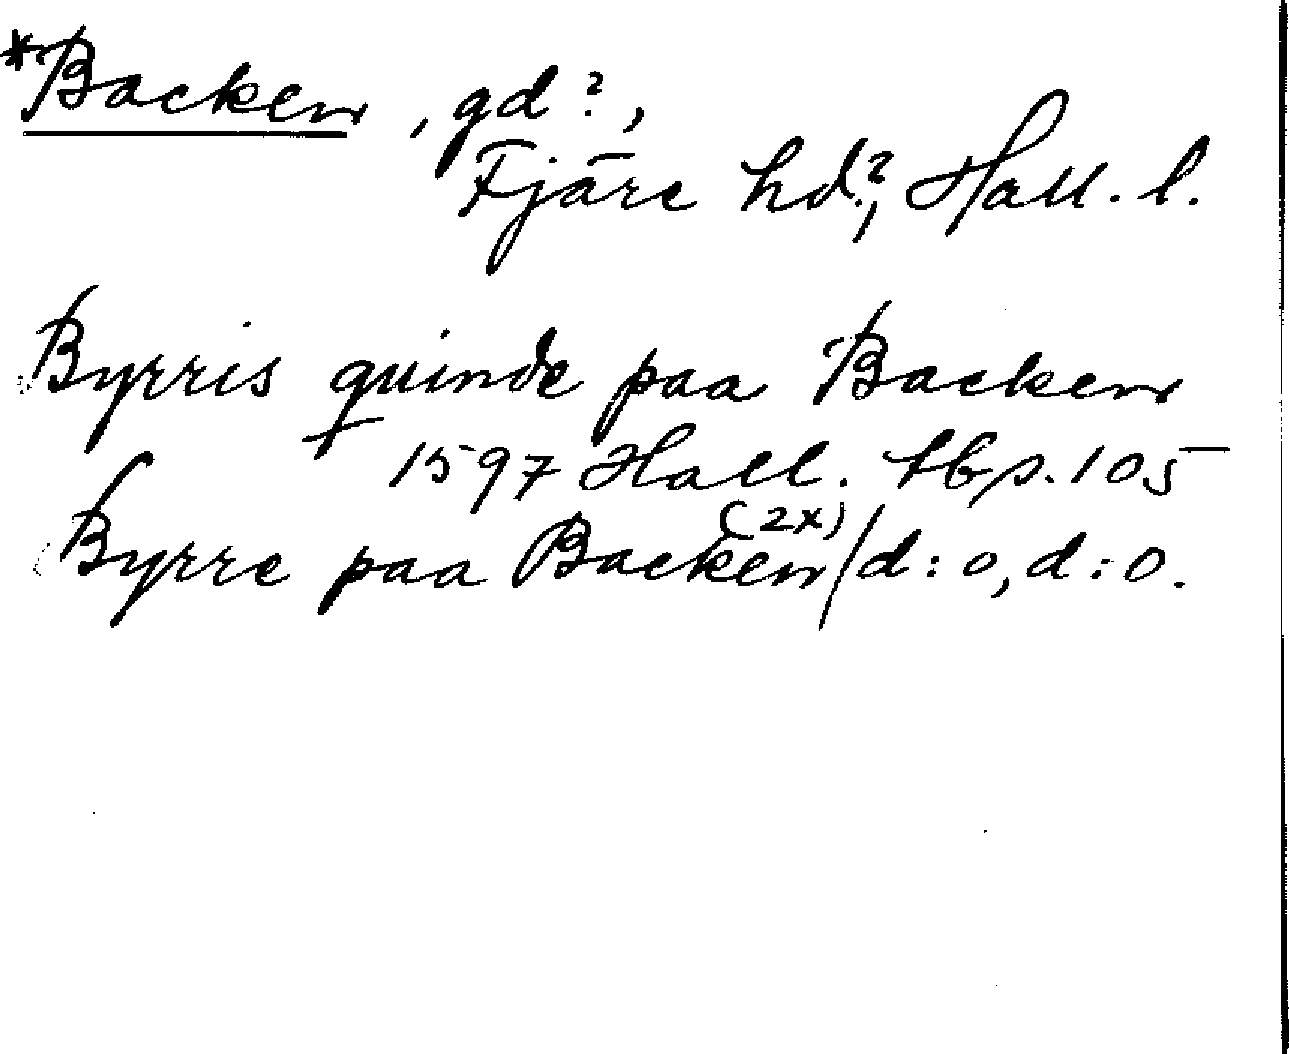 *Backen, gd?,
Fjäre hd?, Hall. l.
Byrris quinde paa Backen
1597 Hall. tb s. 105
Byrre paa Backen (2x) / d:o, d:o.